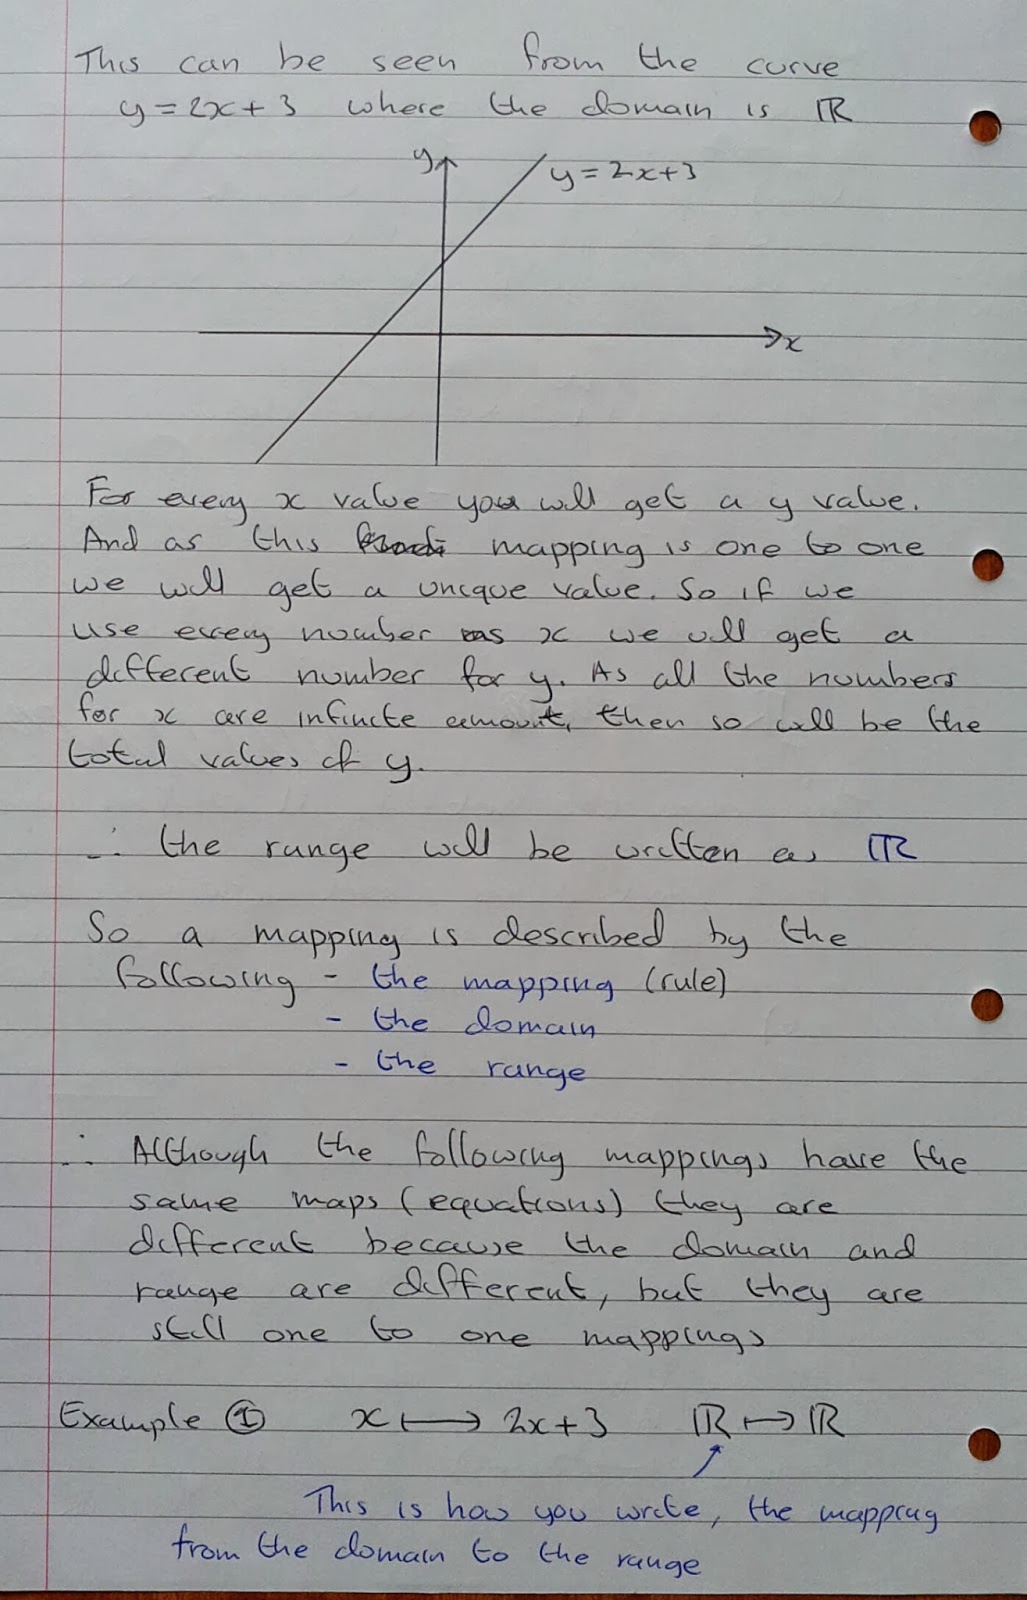 This can be seen from the curve
y = 2x + 3 where the domain is ℝ
y
y = 2x+3
x
For every x value you will get a y value.
And as this mapping is one to one
we will get a unique value. So if we
use every number as x we will get a
different number for y. As all the numbers
for x are infinite amount, then so will be the
total values of y.
∴ the range will be written as ℝ
So a mapping is described by the
following - the mapping (rule)
- the domain
- the range
∴ Although the following mappings have the
same maps (equations) they are
different because the domain and
range are different, but they are
still one to one mappings
Example ① x ⟼ 2x+3 ℝ ↦ ℝ
This is how you write, the mapping
from the domain to the range